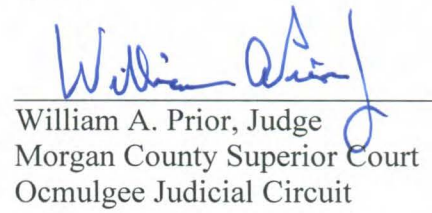 William A. Prior
William A. Prior, Judge
Morgan County Superior Court
Ocmulgee Judicial Circuit